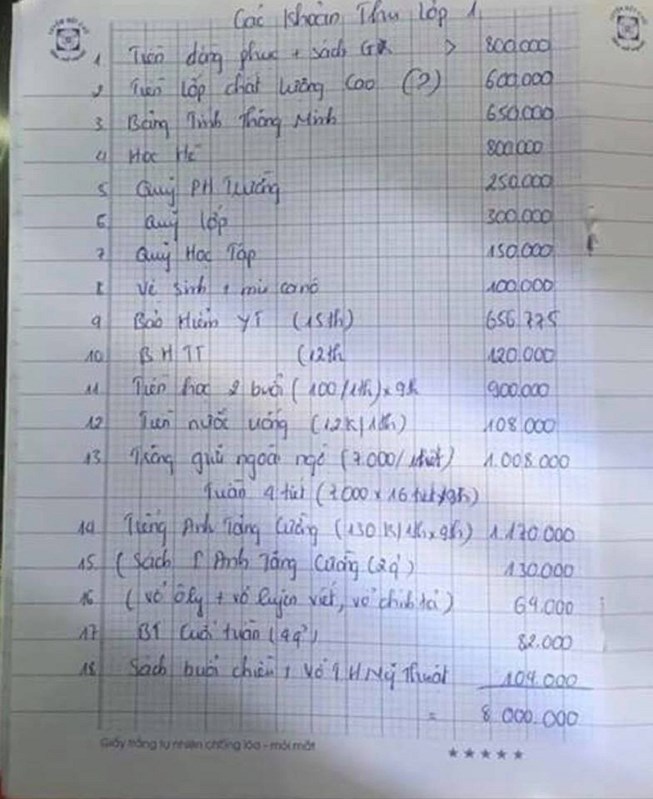 Các khoản Thu lớp 1
1 Tiền đồng phục + sách GK > 800.000
2 Tiền lớp chất lượng Cao (?) 600.000
3 Bảng Tính Thông Minh 650.000
4 Học Hè 800.000
5 Quỹ PH Trường 250.000
6 Quỹ lớp 300.000
7 Quỹ Học Tập 150.000
8 Vệ sinh + 100.000
9 Bảo Hiểm YT (15th) 656.775
10 BHTT (12th 120.000
11 Tiền học 2 buổi (100/1th) x 9th 900.000
12 Tiền nước uống (12K/1th) 108.000
13 Tiếng ngoại ngữ (7.000/tiết) 1.008.000
Tuần 4 tiết (7.000 x 16 tiết/9th)
14 Tiếng Anh Tăng Cường (130K/1th x 9th) 1.170.000
15 (Sách T Anh Tăng Cường (2q) 130.000
16 (Vở Ôly + vở luyện viết, vở chính tả) 69.000
17 BT Cuối tuần (4q) 82.000
18 Sách buổi chiều + Vở Mỹ Thuật 104.000
= 8.000.000
Giấy trắng tự nhiên chống lóa - mỏi mắt